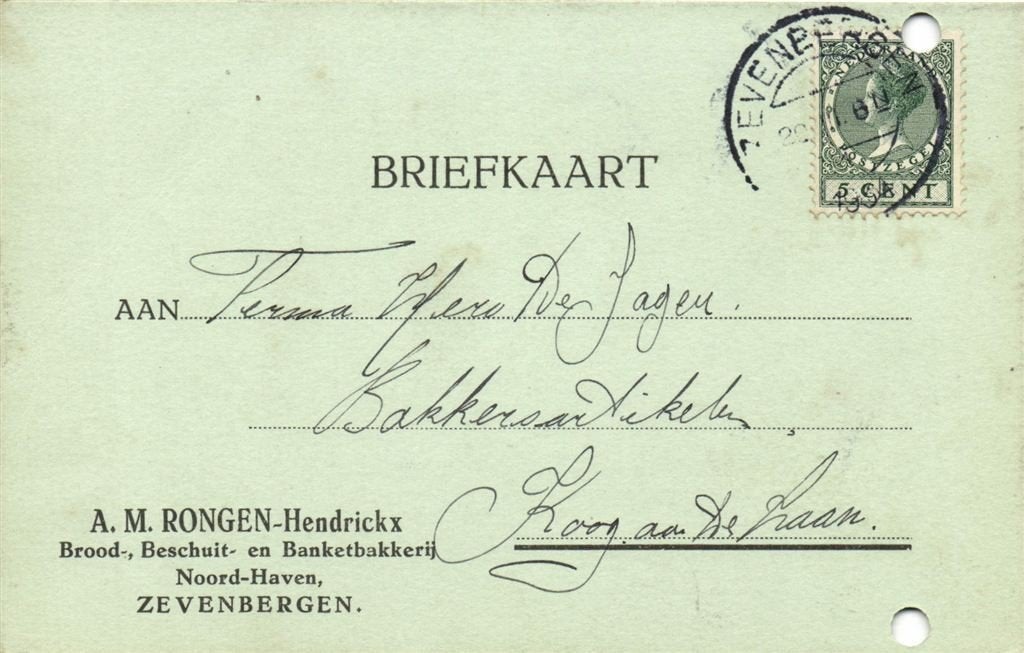 ZEVENBERGEN
6 N
NEDERLAND
POSTZEGEL
5 CENT
BRIEFKAART
AAN Firma Hero De Jager.
Bakkersartikelen,
Koog aan De Zaan.
A. M. RONGEN-Hendrickx
Brood-, Beschuit- en Banketbakkerij
Noord-Haven,
ZEVENBERGEN.